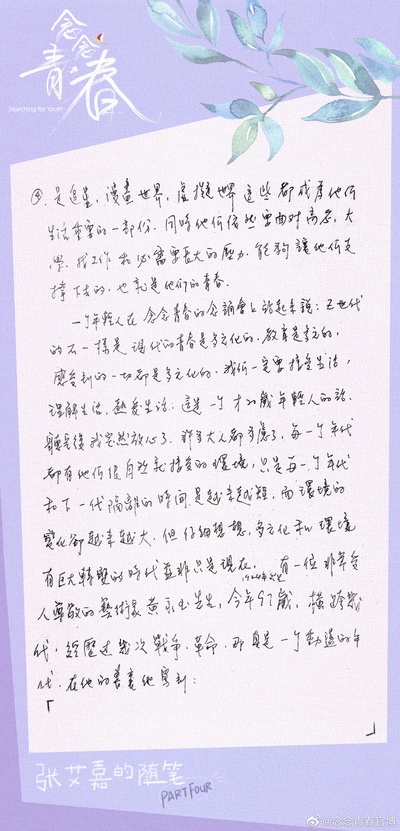 念念
青春
Searching for Youth
④ 是追星，漫畫世界，虛擬世界這些都成為他們
生活重要的一部份，同時他們依然要面對高考，大
學，找工作和必需要長大的壓力，能夠讓他們支
撐下去的，也就是他們的青春。
一个年輕人在念念青春的念誦會上站起來說：
的不一樣是 現代的青春是多元化的，教育是多元的，
感受到的一切都是多元化的，我們一定要接受生活，
理解生活，熱愛生活。這是一个才22歲年輕人的話，
聽完後我突然放心了，許多大人都多慮了，每一个年代
都有他們很自然就接受的環境，只是每一个年代
和下一代隔離的時間是越來越短，而環境的
變化卻越來越大，但仔細想想，多元化和環境
有巨大轉變的時代並非只是現在，有一位非常受
人尊敬的藝術家黃永玉先生，今年97歲，橫跨
代，經歷過幾次戰爭，革命，那真是一个動盪的年
代，在他的書裏他寫到：
「
」
张艾嘉的随笔
PART FOUR
@念念青春官博